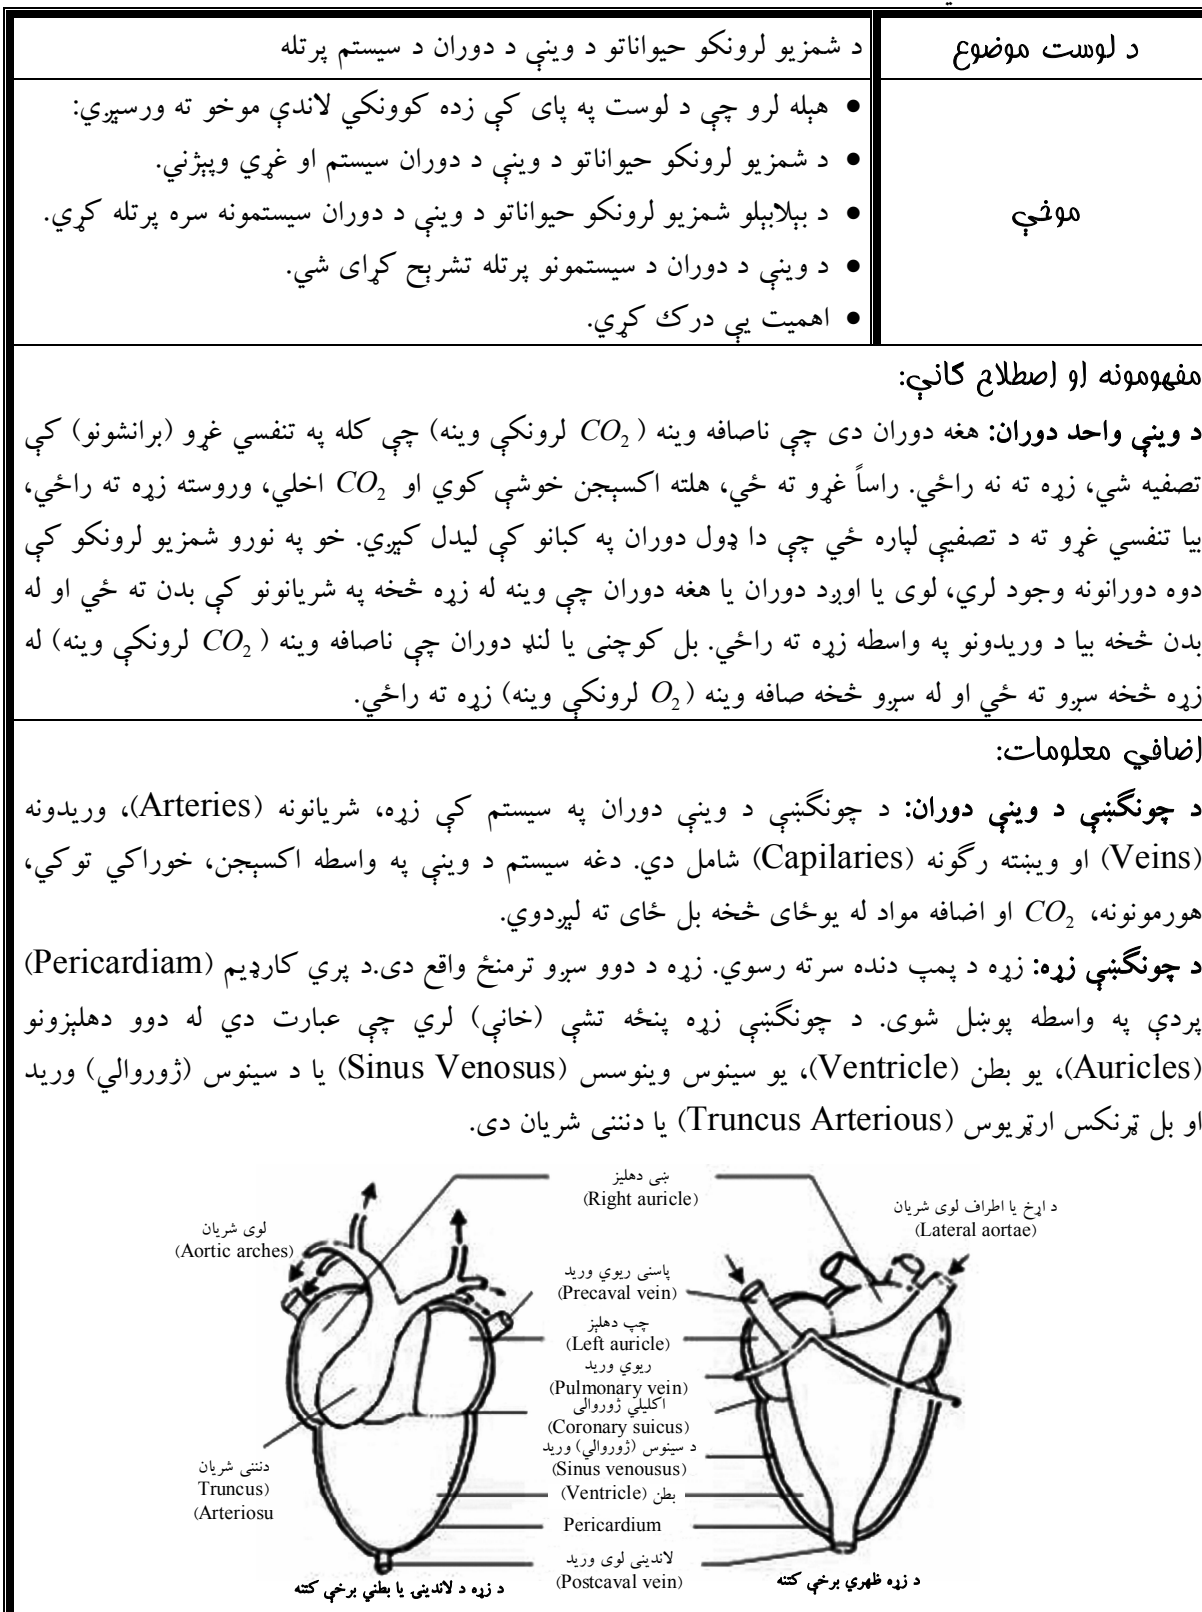 د لوست موضوع
د شمزیو لرونکو حیواناتو د وینې د دوران د سیستم پرتله
موخې
● هیله لرو چې د لوست په پای کې زده کوونکي لاندې موخو ته ورسیږي:
● د شمزیو لرونکو حیواناتو د وینې د دوران سیستم او غړي وپېژني.
● د بېلابېلو شمزیو لرونکو حیواناتو د وینې د دوران سیستمونه سره پرتله کړي.
● د وینې د دوران د سیستمونو پرتله تشرېح کړای شي.
● اهمیت یې درك کړي.
مفهومونه او اصطلاح ګانې:
د وینې واحد دوران: هغه دوران دی چې ناصافه وینه (CO₂ لرونکې وینه) چې کله په تنفسي غړو (برانشونو) کې
تصفیه شي، زړه ته نه راځي. راساً غړو ته ځي، هلته اکسېجن خوشې کوي او CO₂ اخلي، وروسته زړه ته راځي،
بیا تنفسي غړو ته د تصفیې لپاره ځي چې دا ډول دوران په کبانو کې لیدل کېږي. خو په نورو شمزیو لرونکو کې
دوه دورانونه وجود لري، لوی یا اوږد دوران یا هغه دوران چې وینه له زړه څخه په شریانونو کې بدن ته ځي او له
بدن څخه بیا د وریدونو په واسطه زړه ته راځي. بل کوچنی یا لنډ دوران چې ناصافه وینه (CO₂ لرونکې وینه) له
زړه څخه سږو ته ځي او له سږو څخه صافه وینه (O₂ لرونکې وینه) زړه ته راځي.
اضافي معلومات:
د چونګښې د وینې دوران: د چونګښې د وینې دوران په سیستم کې زړه، شریانونه (Arteries)، وریدونه
(Veins) او ویښته رګونه (Capilaries) شامل دي. دغه سیستم د وینې په واسطه اکسېجن، خوراکي توکي،
هورمونونه، CO₂ او اضافه مواد له یوځای څخه بل ځای ته لېږدوي.
د چونګښې زړه: زړه د پمپ دنده سرته رسوي. زړه د دوو سږو ترمنځ واقع دی.د پري کارډیم (Pericardiam)
پردې په واسطه پوښل شوی. د چونګښې زړه پنځه تشې (خانې) لري چې عبارت دي له دوو دهلېزونو
(Auricles)، یو بطن (Ventricle)، یو سینوس وینوسس (Sinus Venosus) یا د سینوس (ژوروالي) ورید
او بل ټرنکس ارټریوس (Truncus Arterious) یا دننی شریان دی.
ښی دهلیز
(Right auricle)
د اړخ یا اطراف لوی شریان
(Lateral aortae)
لوی شریان
(Aortic arches)
پاسنی ریوي ورید
(Precaval vein)
چپ دهلېز
(Left auricle)
ریوي ورید
(Pulmonary vein)
اکلیلي ژوروالی
(Coronary suicus)
د سینوس (ژوروالي) ورید
(Sinus venousus)
دننی شریان
Truncus)
(Arteriosu
بطن (Ventricle)
Pericardium
لاندینی لوی ورید
(Postcaval vein)
د زړه ظهري برخې کتنه
د زړه د لاندینۍ یا بطني برخې کتنه